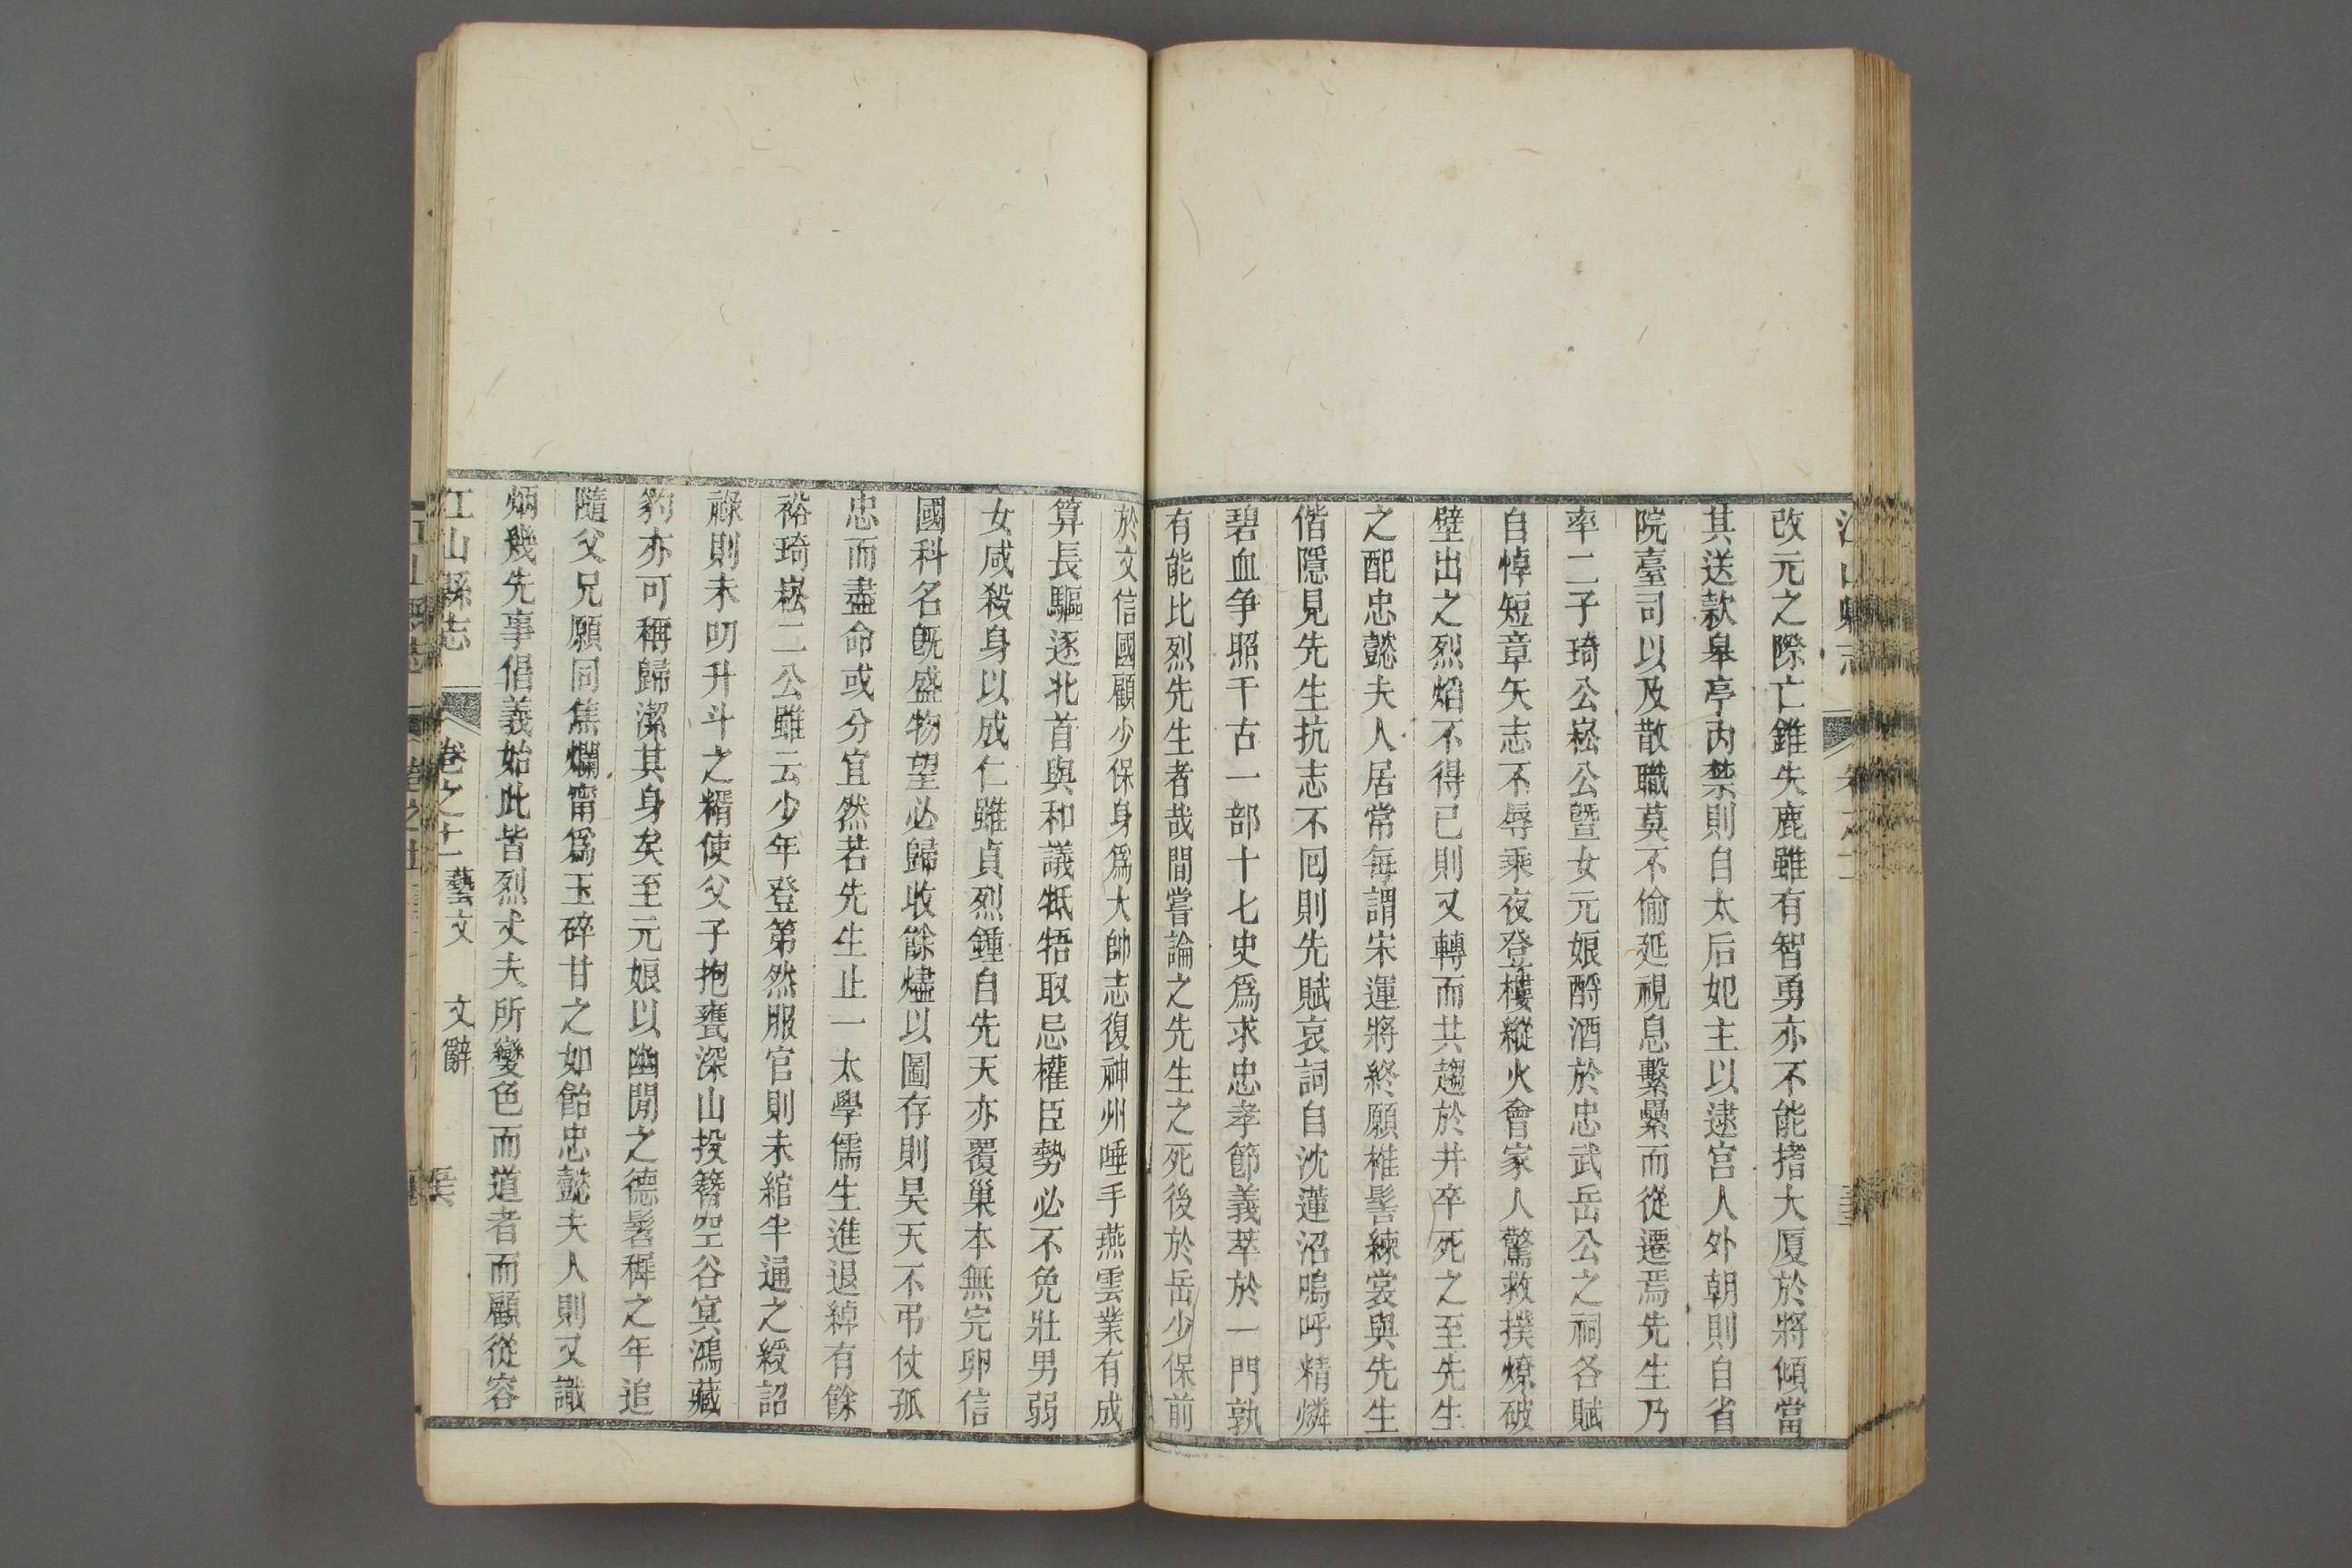 改元之際亡錐失鹿雖有智勇亦不能搘大厦於將傾當
其送款皋亭內禁則自太后妃主以逮宮人外朝則自省
院臺司以及散職莫不偷延視息繫纍而從遷焉先生乃
率二子琦公崧公暨女元娘酹酒於忠武岳公之祠各賦
自悼短章矢志不辱乘夜登樓縱火會家人驚救撲燎破
壁出之烈焰不得已則又轉而共趨於井卒死之至先生
之配忠懿夫人居常每謂宋運將終願椎髻練裳與先生
偕隱見先生抗志不囘則先賦哀詞自沈蓮沼嗚呼精燐
碧血争照千古一部十七史爲求忠孝節義萃於一門孰
有能比烈先生者哉間嘗論之先生之死後於岳少保前
於文信國顧少保身爲大帥志復神州唾手燕雲業有成
算長驅逐北首與和議牴牾取忌權臣勢必不免壯男弱
女咸殺身以成仁雖貞烈鍾自先天亦覆巢本無完卵信
國科名旣盛物望必歸收餘燼以圖存則昊天不弔仗孤
忠而盡命或分宜然若先生止一太學儒生進退綽有餘
裕琦崧二公雖云少年登第然服官則未綰半通之綬詔
祿則未叨升斗之糈使父子抱甕深山投簪空谷冥鴻藏
豹亦可稱歸潔其身矣至元娘以幽閒之德髫穉之年追
隨父兄願同焦爛甯爲玉碎甘之如飴忠懿夫人則又識
炳幾先事倡義始此皆烈丈夫所變色而道者而顧從容
江山縣志 卷之十一 藝文 文辭